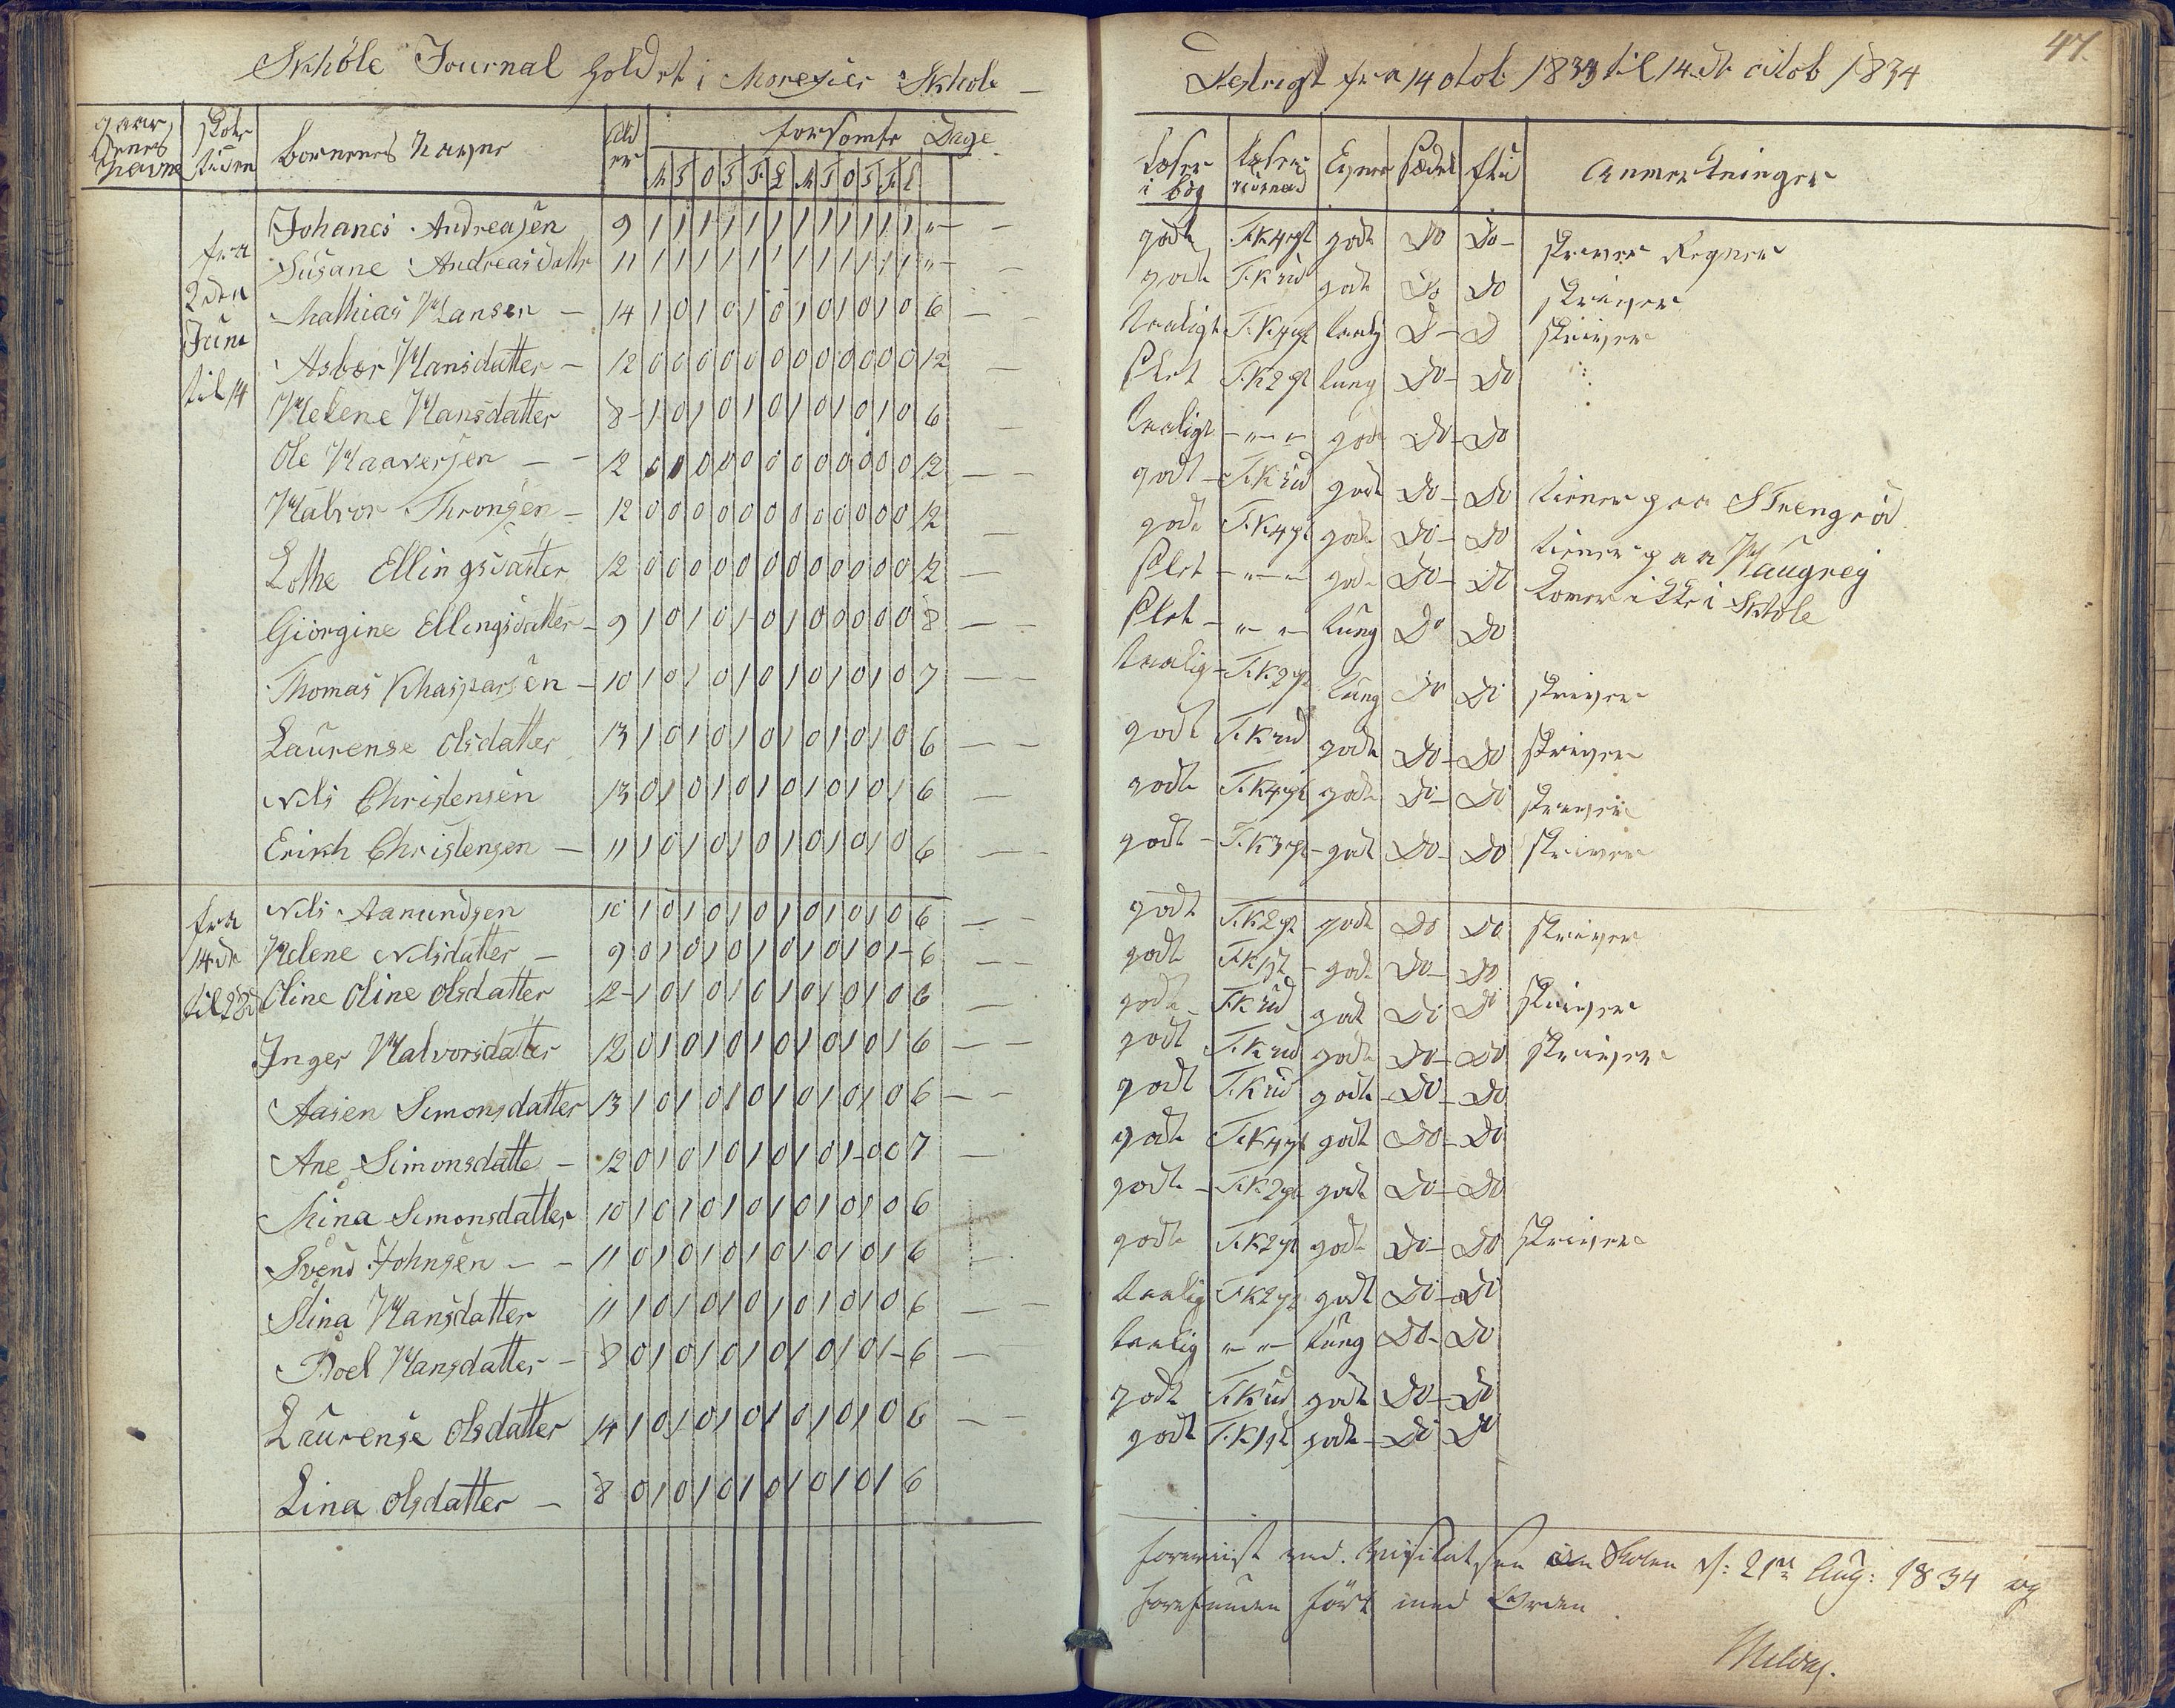 Skhole Journal holdet i Moregier Skhole
gaardenes Navne
Skoletiden
Børnenes Navne
Alder
forsømte Dage
M T O T F L M T O T F L
fra 2den Juni til 14
Johanes Andreasen 9 1 1 1 1 1 1 1 1 1 1 1 1 "
Susane Andreasdatter 11 1 1 1 1 1 1 1 1 1 1 1 1 "
Mathias Hansen 14 1 0 1 0 1 0 1 0 1 0 1 0 6
Asbør Hansdatter 12 0 0 0 0 0 0 0 0 0 0 0 0 12
Helene Hansdatter 8 1 0 1 0 1 0 1 0 1 0 1 0 6
Ole Haaversen 12 0 0 0 0 0 0 0 0 0 0 0 0 12
Halvor Thronsen 12 0 0 0 0 0 0 0 0 0 0 0 0 12
Lothe Ellingsdatter 12 0 0 0 0 0 0 0 0 0 0 0 0 12
Giorgine Ellingsdatter 9 1 0 1 0 1 0 1 0 0 0 0 0 8
Thomas Khasparsen 10 1 0 1 0 1 0 1 0 1 0 1 0 7
Laurense Olsdatter 13 1 0 1 0 1 0 1 0 1 0 1 0 6
Nils Christensen 13 0 1 0 1 0 1 0 1 0 1 0 1 6
Erikh Christensen 11 1 0 1 0 1 0 1 0 1 0 1 0 6
fra 14de til 28d
Nils Aanundsen 10 1 0 1 0 1 0 1 0 1 0 1 0 6
Helene Nilsdatter 9 0 1 0 1 0 1 0 1 0 1 0 1 6
Oline Oline Olsdatter 12 1 0 1 0 1 0 1 0 1 0 1 0 6
Inger Halvorsdatter 12 0 1 0 1 0 1 0 1 0 1 0 1 6
Aasen Simonsdatter 13 1 0 1 0 1 0 1 0 1 0 1 0 6
Ane Simonsdatte 12 0 1 0 1 0 1 0 1 0 1 0 0 7
Mina Simonsdatter 10 1 0 1 0 1 0 1 0 1 0 1 0 6
Svend Johnsen 11 0 1 0 1 0 1 0 1 0 1 0 1 6
Stina Hansdatter 11 1 0 1 0 1 0 1 0 1 0 1 0 6
Boel Hansdatter 8 0 1 0 1 0 1 0 1 0 1 0 1 6
Laurense Olsdatter 14 1 0 1 0 1 0 1 0 1 0 1 0 6
Lina Olsdatter 8 0 1 0 1 0 1 0 1 0 1 0 1 6
47.
Destrigt fra 14 otob 1833 til 14de octob 1834
Læser i bog
Læser
Evner
Sæder
flid
Anmerkninger
godt T.K 4 gt godt Do Do skriver Regner
godt T.K ud godt Do Do skriver
taaligt T.K 4 gt taalig D D skriver
Slet T.K 2 gt tung Do Do
taaligt " " godt Do Do
godt T.K ud godt Do Do tiener paa Strengrød
godt T.K 4 gt godt Do Do tiener paa Haugrej
Slet " " godt Do Do komer ikke i Skhole
Slet " " tung Do Do
taalig T.K 2 gt tung Do Do skriver
godt T.K ud godt Do Do skriver
godt T.K 4 gt godt Do Do skriver
godt T.K 3 gt godt Do Do skriver
godt T.K 2 gt godt Do Do skriver
godt T.K 1 gt godt Do Do
godt T.K ud godt Do Do skriver
godt T.K ud godt Do Do skriver
godt T.K ud godt Do Do
godt T.K 4 gt godt Do Do
godt T.K 2 gt godt Do Do
godt T.K 2 gt godt Do Do skriver
taalig T.K 2 gt godt Do Do
taalig " " tung Do Do
godt T.K ud godt Do Do
godt T.K 1 gt godt Do Do
foreviist ved Visitatsen i Skolen d: 21de Aug: 1834 og
forefunden ført med Orden